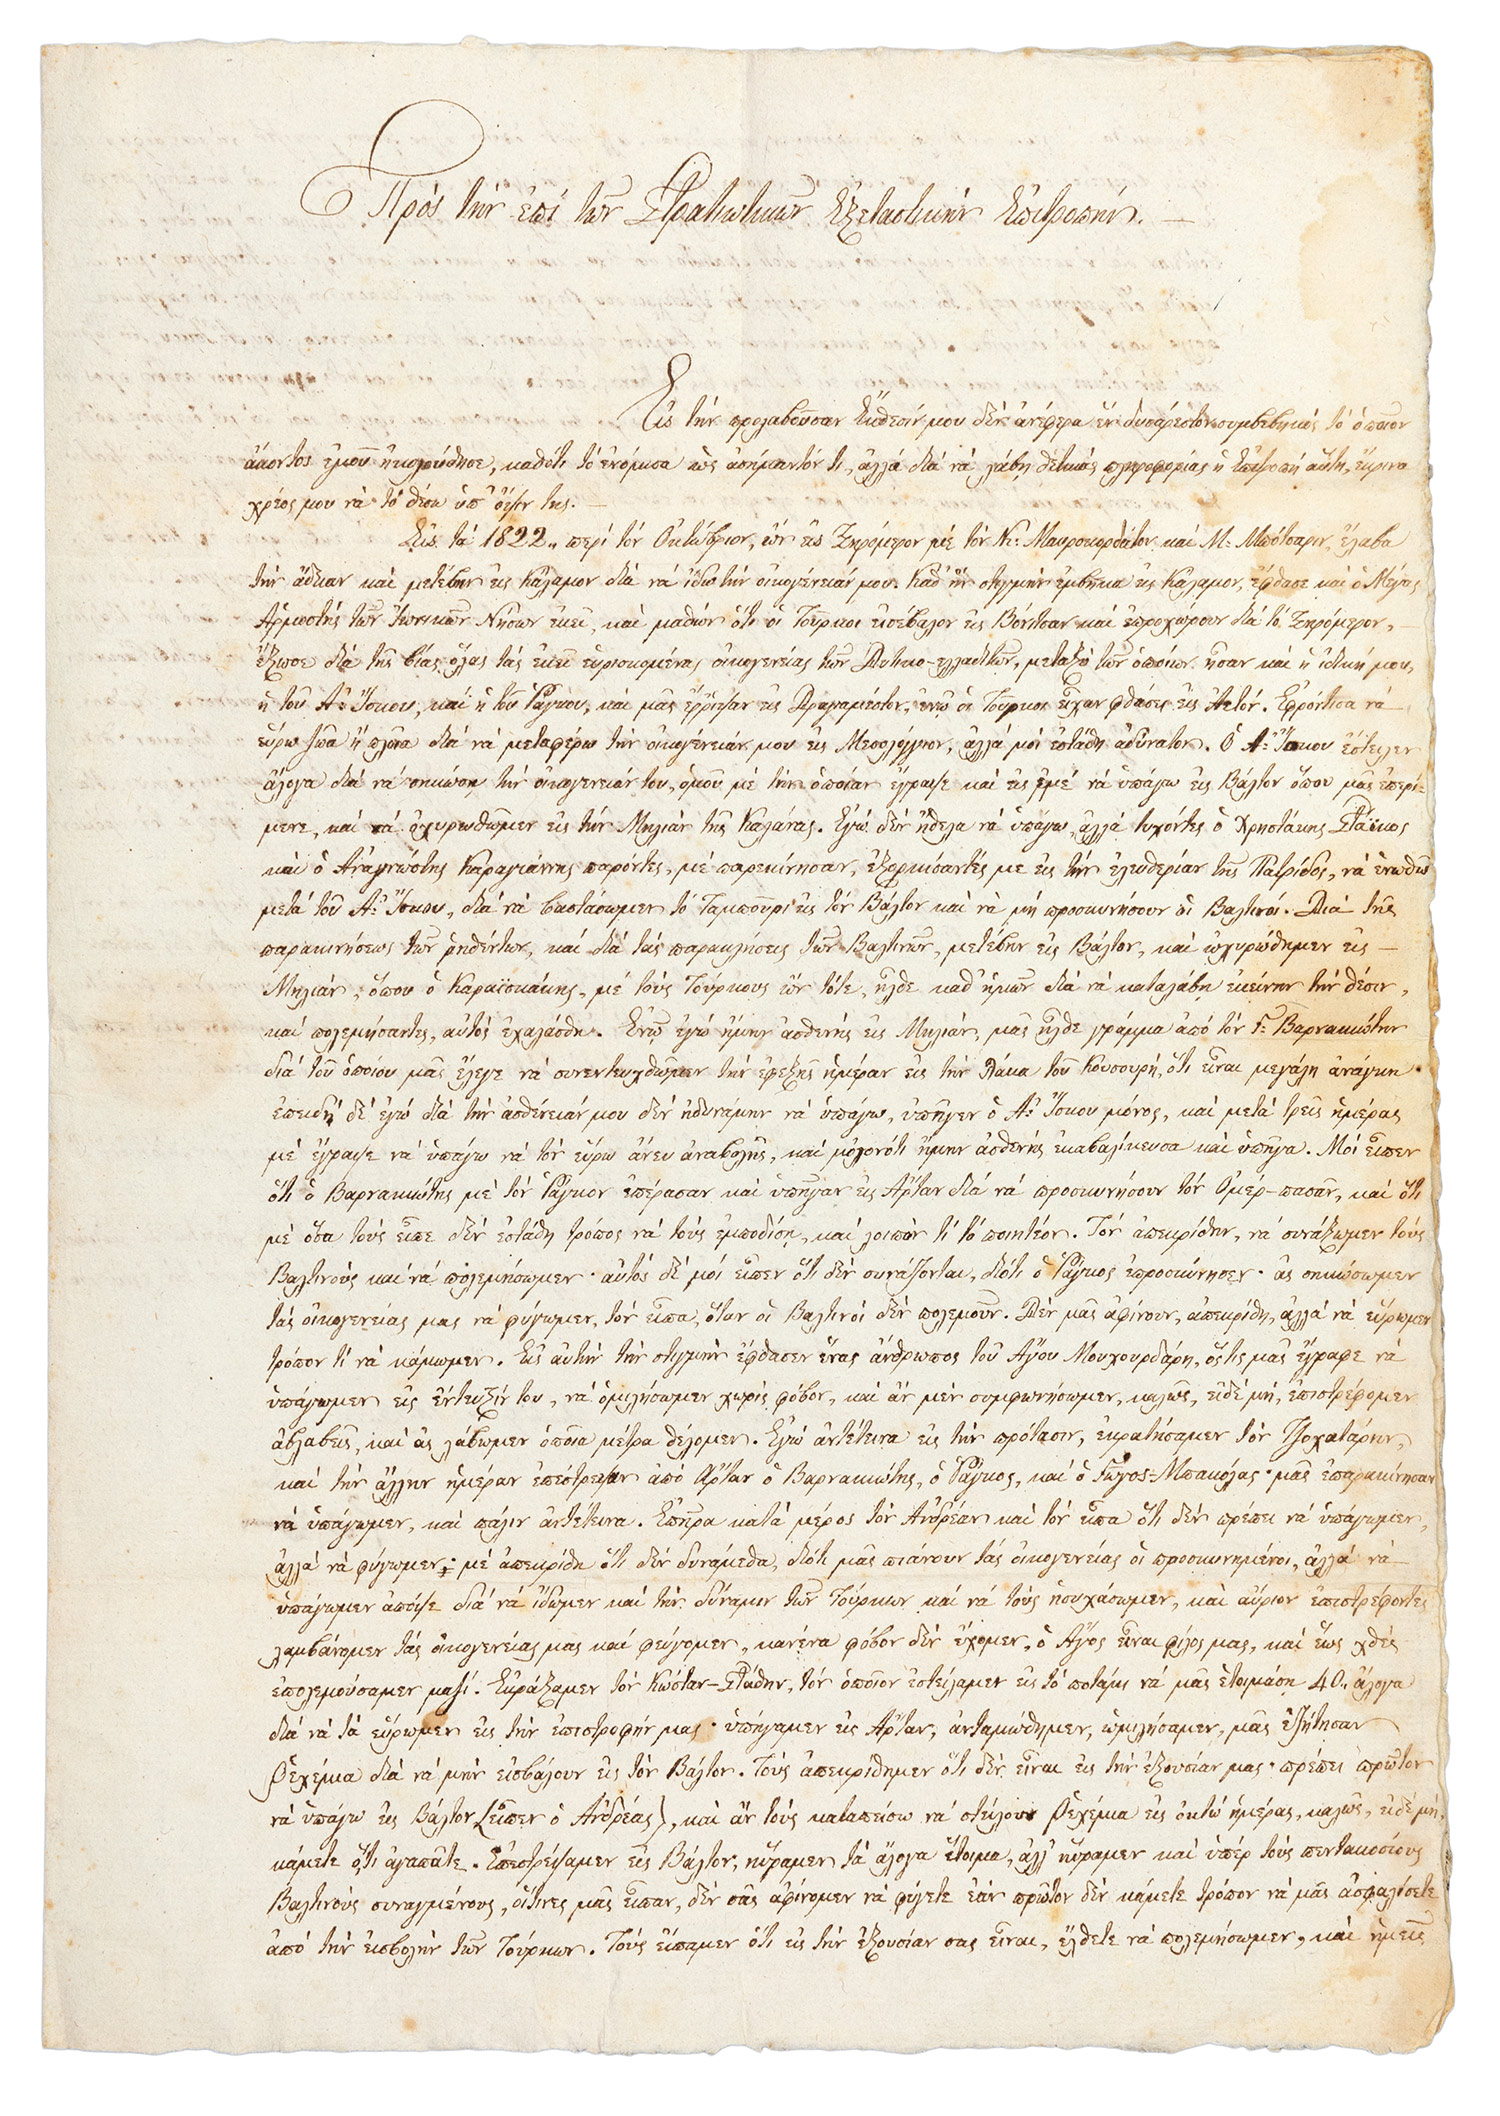 Πρὸς τὴν ἐπὶ τῶν Στρατιωτικῶν Ἐξεταστικὴν Ἐπιτροπήν. —
Εἰς τὴν προλαβοῦσαν ἔκθεσίν μου δὲν ἀνέφερα ἓν δυσάρεστον συμβεβηκὸς τὸ ὁποῖον
ἄκοντος ἐμοῦ ἠκολούθησε, καθότι τὸ ἐνόμισα ὡς ἀσήμαντόν τι, ἀλλὰ διὰ νὰ λάβῃ θετικὰς πληροφορίας ἡ Ἐπιτροπὴ αὕτη, ἔκρινα
χρέος μου νὰ τὸ θέσω ὑπ' ὄψιν της. —
Εἰς τὰ 1822,, περὶ τὸν Ὀκτώβριον, ὢν εἰς Ξηρόμερον μὲ τὸν Κ: Μαυροκορδάτον καὶ Μ: Μπότσαριν, ἔλαβα
τὴν ἄδειαν καὶ μετέβην εἰς Κάλαμον διὰ νὰ ἰδῶ τὴν οἰκογένειάν μου. Καθ' ἣν στιγμὴν ἐμβῆκα εἰς Κάλαμον, ἔφθασε καὶ ὁ Μέγας
Ἁρμοστὴς τῶν Ἰωνικῶν Νήσων ἐκεῖ, καὶ μαθὼν ὅτι οἱ Τοῦρκοι εἰσέβαλον εἰς Βόνιτσαν καὶ ἐπροχώρουν διὰ τὸ Ξηρόμερον, —
ἔξωσε διὰ τῆς βίας ὅλας τὰς ἐκεῖ εὑρισκομένας οἰκογενείας τῶν Δυτικο-ελλαδιτῶν, μεταξὺ τῶν ὁποίων ἦσαν καὶ ἡ ἰδική μου,
ἡ τοῦ Ἀ: Ἴσκου, καὶ ἡ τοῦ Ῥάγκου, καὶ μᾶς ἔῤῥιψαν εἰς Δραγαμέστον, ἐνῷ οἱ Τοῦρκοι εἶχαν φθάσει εἰς Ἀετόν. Ἐφρόντισα νὰ
εὕρω ζῶα ἢ πλοῖα διὰ νὰ μεταφέρω τὴν οἰκογένειάν μου εἰς Μεσολόγγιον, ἀλλὰ μοὶ ἐστάθη ἀδύνατον. Ὁ Ἀ: Ἴσκου ἔστειλεν
ἄλογα διὰ νὰ σηκώσῃ τὴν οἰκογένειάν του, ὁμοῦ μὲ τὴν ὁποίαν ἔγραψε καὶ εἰς ἐμὲ νὰ ὑπάγω εἰς Βάλτον ὅπου μᾶς ἐπερί-
μενε, καὶ νὰ ὀχυρωθῶμεν εἰς τὴν Μηλιὰν τῆς Καλάνας. Ἐγὼ δὲν ἤθελα νὰ ὑπάγω, ἀλλὰ τυχόντες ὁ Χρηστάκης Στάϊκος
καὶ ὁ Ἀναγνώστης Καραγιάννης παρόντες, μὲ παρεκίνησαν, ἐξορκίσαντές με εἰς τὴν ἐλευθερίαν τῆς Πατρίδος, νὰ ἑνωθῶ
μετὰ τοῦ Ἀ: Ἴσκου, διὰ νὰ βαστάσωμεν τὸ Ταμποῦρι εἰς τὸν Βάλτον καὶ νὰ μὴ προσκυνήσουν οἱ Βαλτινοί. Διὰ τῆς
παρακινήσεως τῶν ῥηθέντων, καὶ διὰ τὰς παρακλήσεις τῶν Βαλτινῶν, μετέβην εἰς Βάλτον, καὶ ὠχυρώθημεν εἰς —
Μηλιάν, ὅπου ὁ Καραϊσκάκης, μὲ τοὺς Τούρκους ὢν τότε, ἦλθε καθ' ἡμῶν διὰ νὰ καταλάβῃ ἐκείνην τὴν θέσιν,
καὶ πολεμήσαντες, αὐτὸς ἐχαλάσθη. Ἐνῷ ἐγὼ ἤμην ἀσθενὴς εἰς Μηλιάν, μᾶς ἦλθε γράμμα ἀπὸ τὸν Γ: Βαρνακιώτην
διὰ τοῦ ὁποίου μᾶς ἔλεγε νὰ συνεντευχθῶμεν τὴν ἐφεξῆς ἡμέραν εἰς τὴν Λάκα τοῦ Κουσουρῆ, ὅτι εἶναι μεγάλη ἀνάγκη.
ἐπειδὴ δὲ ἐγὼ διὰ τὴν ἀσθένειάν μου δὲν ἠδυνάμην νὰ ὑπάγω, ὑπῆγεν ὁ Ἀ: Ἴσκου μόνος, καὶ μετὰ τρεῖς ἡμέρας
μὲ ἔγραψε νὰ ὑπάγω νὰ τὸν εὕρω ἄνευ ἀναβολῆς, καὶ μολονότι ἤμην ἀσθενὴς ἐκαβαλίκευσα καὶ ὑπῆγα. Μοὶ εἶπεν
ὅτι ὁ Βαρνακιώτης μὲ τὸν Ῥάγκον ἐπέρασαν καὶ ὑπῆγαν εἰς Ἄρταν διὰ νὰ προσκυνήσουν τὸν Ὀμέρ-πασᾶν, καὶ ὅτι
μὲ ὅσα τοὺς εἶπε δὲν ἐστάθη τρόπος νὰ τοὺς ἐμποδίσῃ, καὶ λοιπὸν τί τὸ ποιητέον. Τὸν ἀπεκρίθην, νὰ συνάξωμεν τοὺς
Βαλτινοὺς καὶ νὰ πολεμήσωμεν· αὐτὸς δὲ μοὶ εἶπεν ὅτι δὲν συνάζονται, διότι ὁ Ῥάγκος ἐπροσκύνησεν· ἂς σηκώσωμεν
τὰς οἰκογενείας μας νὰ φύγωμεν, τὸν εἶπα, ὅταν οἱ Βαλτινοὶ δὲν πολεμοῦν. Δὲν μᾶς ἀφίνουν, ἀπεκρίθη, ἀλλὰ νὰ εὕρωμεν
τρόπον τί νὰ κάμωμεν. Εἰς αὐτὴν τὴν στιγμὴν ἔφθασεν ἕνας ἄνθρωπος τοῦ Ἄγου Μουχουρδάρη, ὅστις μᾶς ἔγραφε νὰ
ὑπάγωμεν εἰς ἔντευξίν του, νὰ ὁμιλήσωμεν χωρὶς φόβον, καὶ ἂν μὲν συμφωνήσωμεν, καλῶς, εἰδὲ μή, ἐπιστρέφομεν
ἀβλαβεῖς, καὶ ἂς λάβωμεν ὁποῖα μέτρα θέλομεν. Ἐγὼ ἀντέτεινα εἰς τὴν πρότασιν, ἐκρατήσαμεν τὸν Τζοχατάρην,
καὶ τὴν ἄλλην ἡμέραν ἐπέστρεψαν ἀπὸ Ἄρταν ὁ Βαρνακιώτης, ὁ Ῥάγκος, καὶ ὁ Γῶγος-Μπακόλας· μᾶς ἐπαρακίνησαν
νὰ ὑπάγωμεν, καὶ πάλιν ἀντέτεινα. Ἐπῆρα κατὰ μέρος τὸν Ἀνδρέαν καὶ τὸν εἶπα ὅτι δὲν πρέπει νὰ ὑπάγωμεν,
ἀλλὰ νὰ φύγωμεν· μὲ ἀπεκρίθη ὅτι δὲν δυνάμεθα, διότι μᾶς πιάνουν τὰς οἰκογενείας οἱ προσκυνημένοι, ἀλλὰ νὰ —
ὑπάγωμεν ἀπόψε διὰ νὰ ἴδωμεν καὶ τὴν δύναμιν τῶν Τούρκων καὶ νὰ τοὺς ἡσυχάσωμεν, καὶ αὔριον ἐπιστρέφοντες
λαμβάνομεν τὰς οἰκογενείας μας καὶ φεύγομεν, κανένα φόβον δὲν ἔχομεν, ὁ Ἄγος εἶναι φίλος μας, καὶ ἕως χθὲς
ἐπολεμούσαμεν μαζί. Ἐκράξαμεν τὸν Κώσταν-Στάθην, τὸν ὁποῖον ἐστείλαμεν εἰς τὸ ποτάμι νὰ μᾶς ἑτοιμάσῃ 40, ἄλογα
διὰ νὰ τὰ εὕρωμεν εἰς τὴν ἐπιστροφήν μας· ὑπήγαμεν εἰς Ἄρταν, ἀνταμώθημεν, ὡμιλήσαμεν, μᾶς ἐζήτησαν
ῥεχέμια διὰ νὰ μὴν εἰσβάλουν εἰς τὸν Βάλτον. Τοὺς ἀπεκρίθημεν ὅτι δὲν εἶναι εἰς τὴν ἐξουσίαν μας· πρέπει πρῶτον
νὰ ὑπάγω εἰς Βάλτον (εἶπεν ὁ Ἀνδρέας), καὶ ἂν τοὺς καταπείσω νὰ στείλουν ῥεχέμια εἰς ὀκτὼ ἡμέρας, καλῶς, εἰδὲ μή,
κάμετε ὅ,τι ἀγαπᾶτε. Ἐπεστρέψαμεν εἰς Βάλτον, ηὕραμεν τὰ ἄλογα ἕτοιμα, ἀλλ' ηὕραμεν καὶ ὑπὲρ τοὺς πεντακοσίους
Βαλτινοὺς συναγμένους, οἵτινες μᾶς εἶπαν, δὲν σᾶς ἀφίνομεν νὰ φύγετε ἐὰν πρῶτον δὲν κάμετε τρόπον νὰ μᾶς ἀσφαλίσετε
ἀπὸ τὴν εἰσβολὴν τῶν Τούρκων. Τοὺς εἴπαμεν ὅτι εἰς τὴν ἐξουσίαν σας εἶναι, ἔλθετε νὰ πολεμήσωμεν, καὶ ἡμεῖς